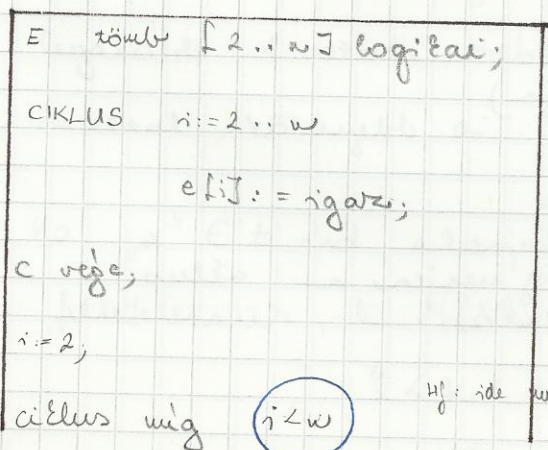 E tömb [2..n] logikai;
CIKLUS i:=2..n
e[i]:=igaz;
C vége;
i:=2;
Hf: ide
ciklus míg i<n